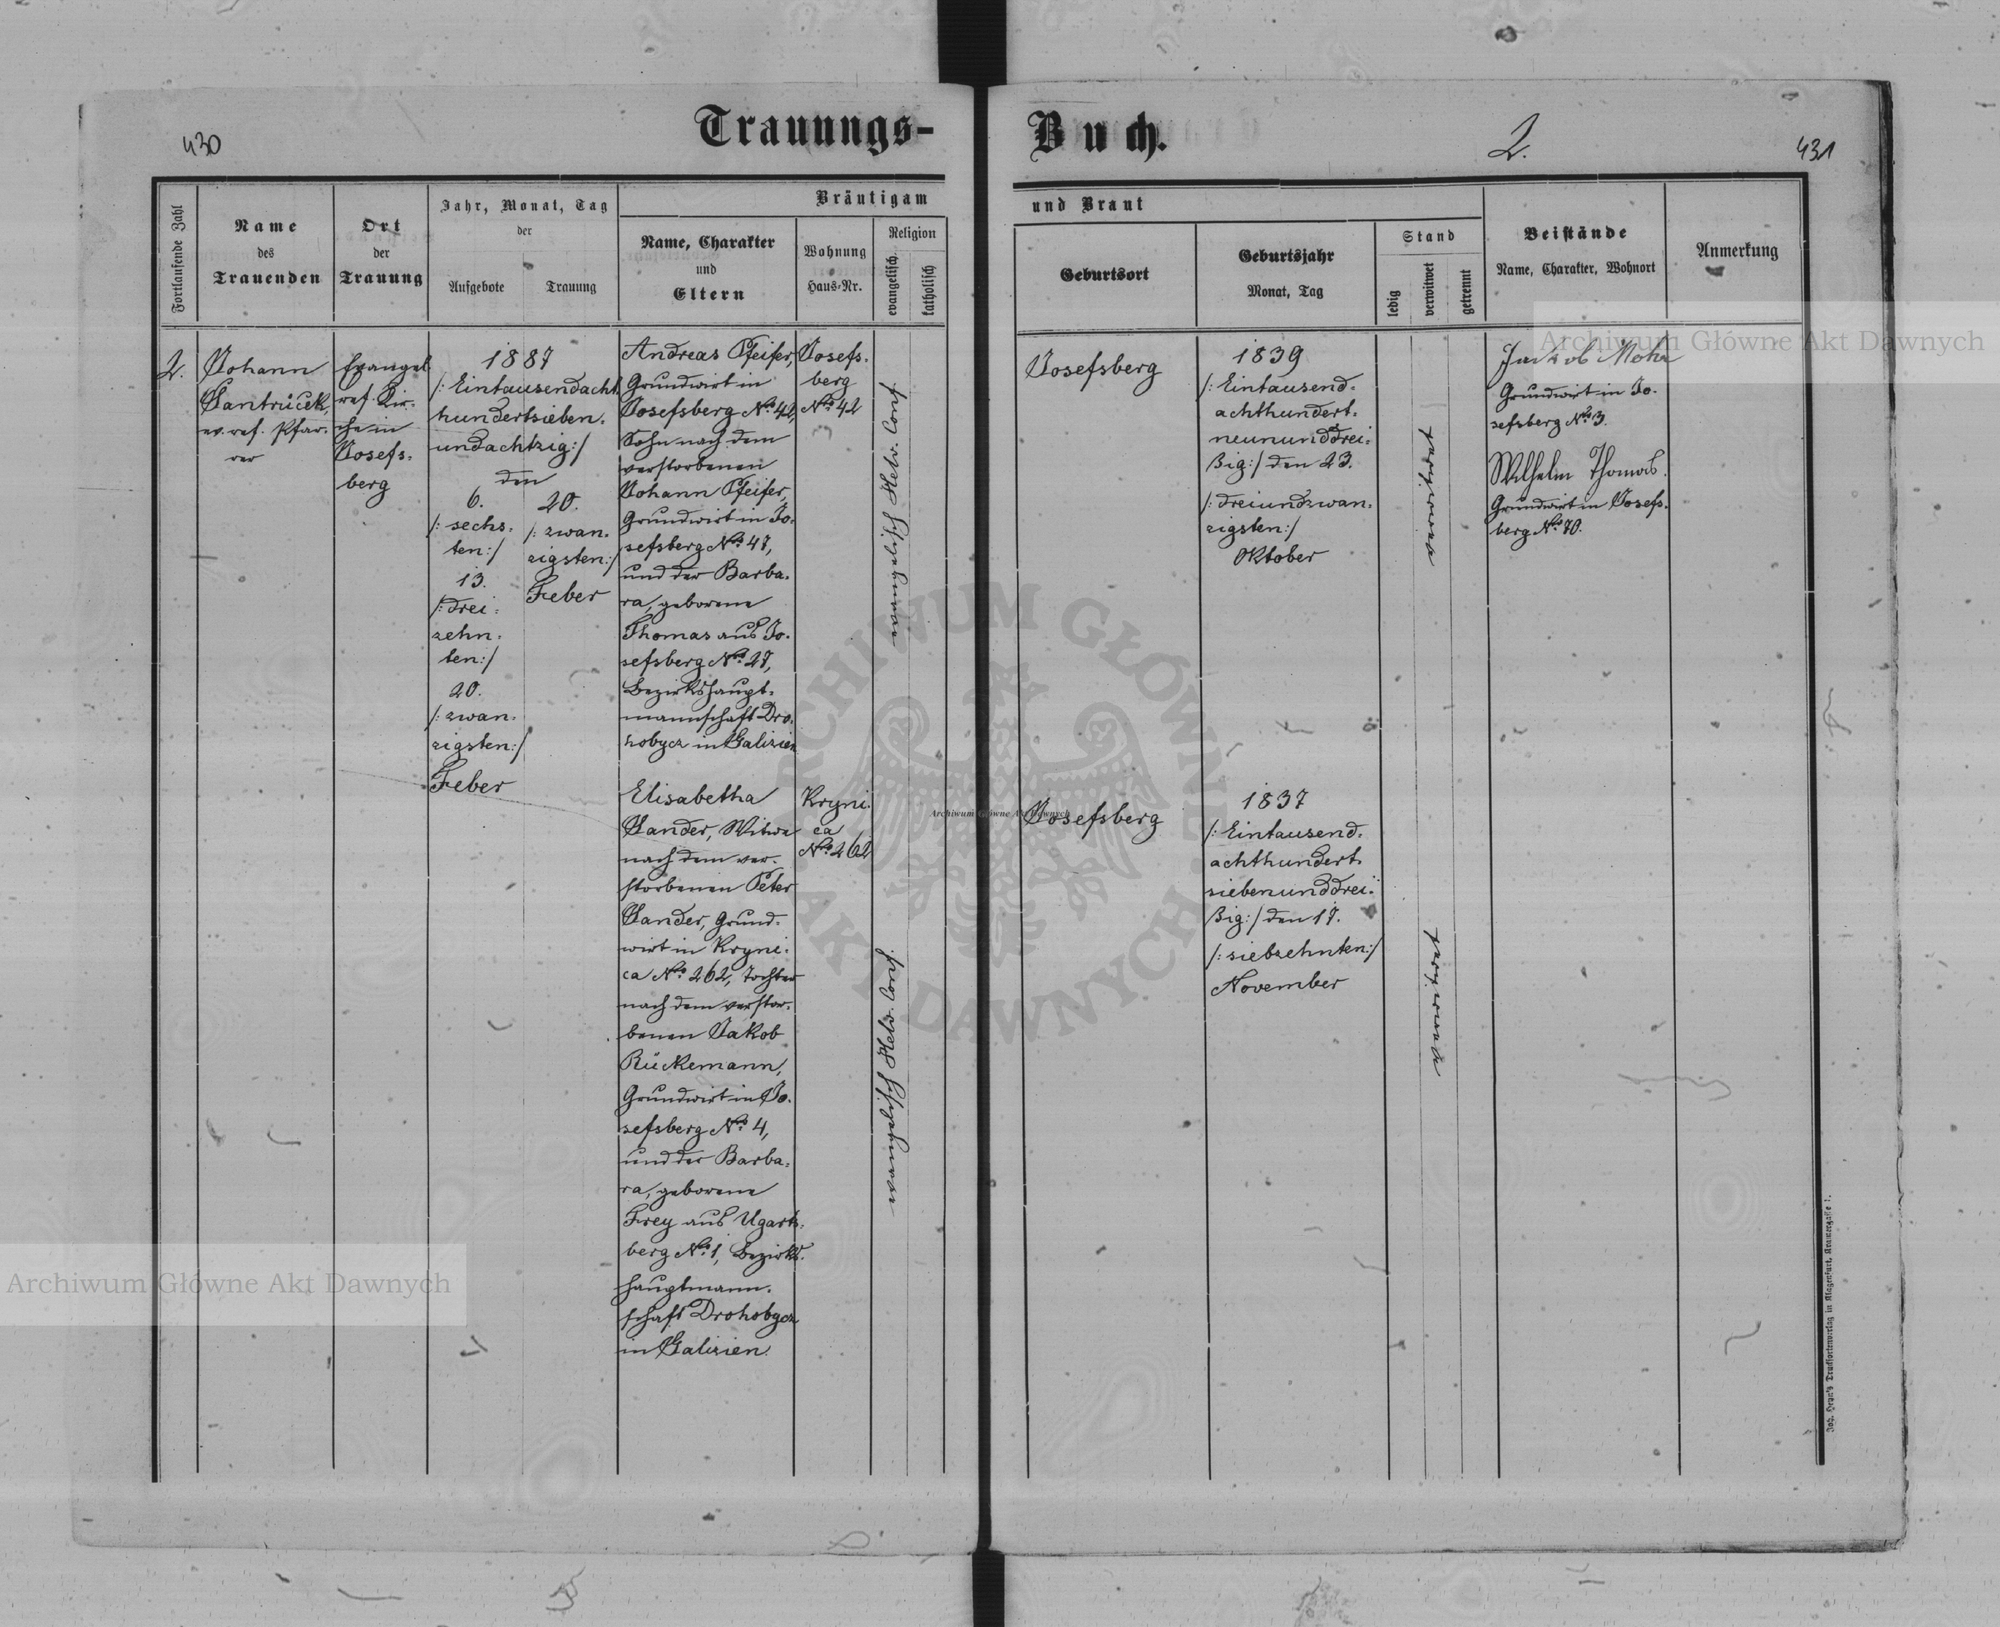 430
Trauungs-
Buch.
2.
431
Fortlaufende Zahl
Name
des
Trauenden
Ort
der
Trauung
Jahr, Monat, Tag
der
Aufgebote
Trauung
Bräutigam
Name, Charakter
und
Eltern
Wohnung
Haus-Nr.
Religion
evangelisch.
katholisch
und Braut
Geburtsort
Geburtsjahr
Monat, Tag
Stand
ledig
verwitwet
getrennt
Beistände
Name, Charakter, Wohnort
Anmerkung
2.
Johann
Jantrůček,
ev. ref. Pfar-
rer
Evangel.
ref. Kir-
che in
Josefs-
berg
1887
/: Eintausendacht
hundertsieben-
undachtzig :/
den
6.
/: sechs-
ten :/
13.
/: drei-
zehn-
ten :/
20.
/: zwan-
zigsten :/
Feber
20.
/: zwan-
zigsten :/
Feber
Andreas Pfeifer,
Grundwirt in
Josefsberg No. 42,
Sohn nach dem
verstorbenen
Johann Pfeifer,
Grundwirt in Jo-
sefsberg No. 47,
und der Barba-
ra, geborene
Thomas aus Jo-
sefsberg No. 27,
Bezirkshaupt-
mannschaft Dro-
hobycz in Galizien
Josefs-
berg
No. 42
evangelisch Helv. Conf.
Josefsberg
1839
/: Eintausend-
achthundert-
neununddrei-
ßig :/ den 23.
/: dreiundzwan-
zigsten :/
Oktober
verwitwet
Jackob Mohr
Grundwirt in Jo-
sefsberg No. 3.
Wilhelm Thomas.
Grundwirt in Josefs-
berg No. 70.
Elisabetha
Sander, Witwe
nach dem ver-
storbenen Peter
Sander, Grund-
wirt in Kryni-
ca No. 262, Tochter
nach dem verstor-
benen Jakob
Rückemann,
Grundwirt in Jo-
sefsberg No. 4,
und der Barba-
ra, geborene
Frey aus Ugarts-
berg No. 1, Bezirks-
hauptmann-
schaft Drohobycz
in Galizien.
Kryni-
ca
No. 262
evangelisch Helv. Conf.
Josefsberg
1837
/: Eintausend-
achthundert-
siebenunddrei-
ßig :/ den 17.
/: siebzehnten :/
November
verwitwet
Joh. Heyn's Drucksortenverlag in Klagenfurt, Kramergasse 7.
Archiwum Główne Akt Dawnych
Archiwum Główne Akt Dawnych
Archiwum Główne Akt Dawnych
ARCHIWUM GŁÓWNE AKT DAWNYCH